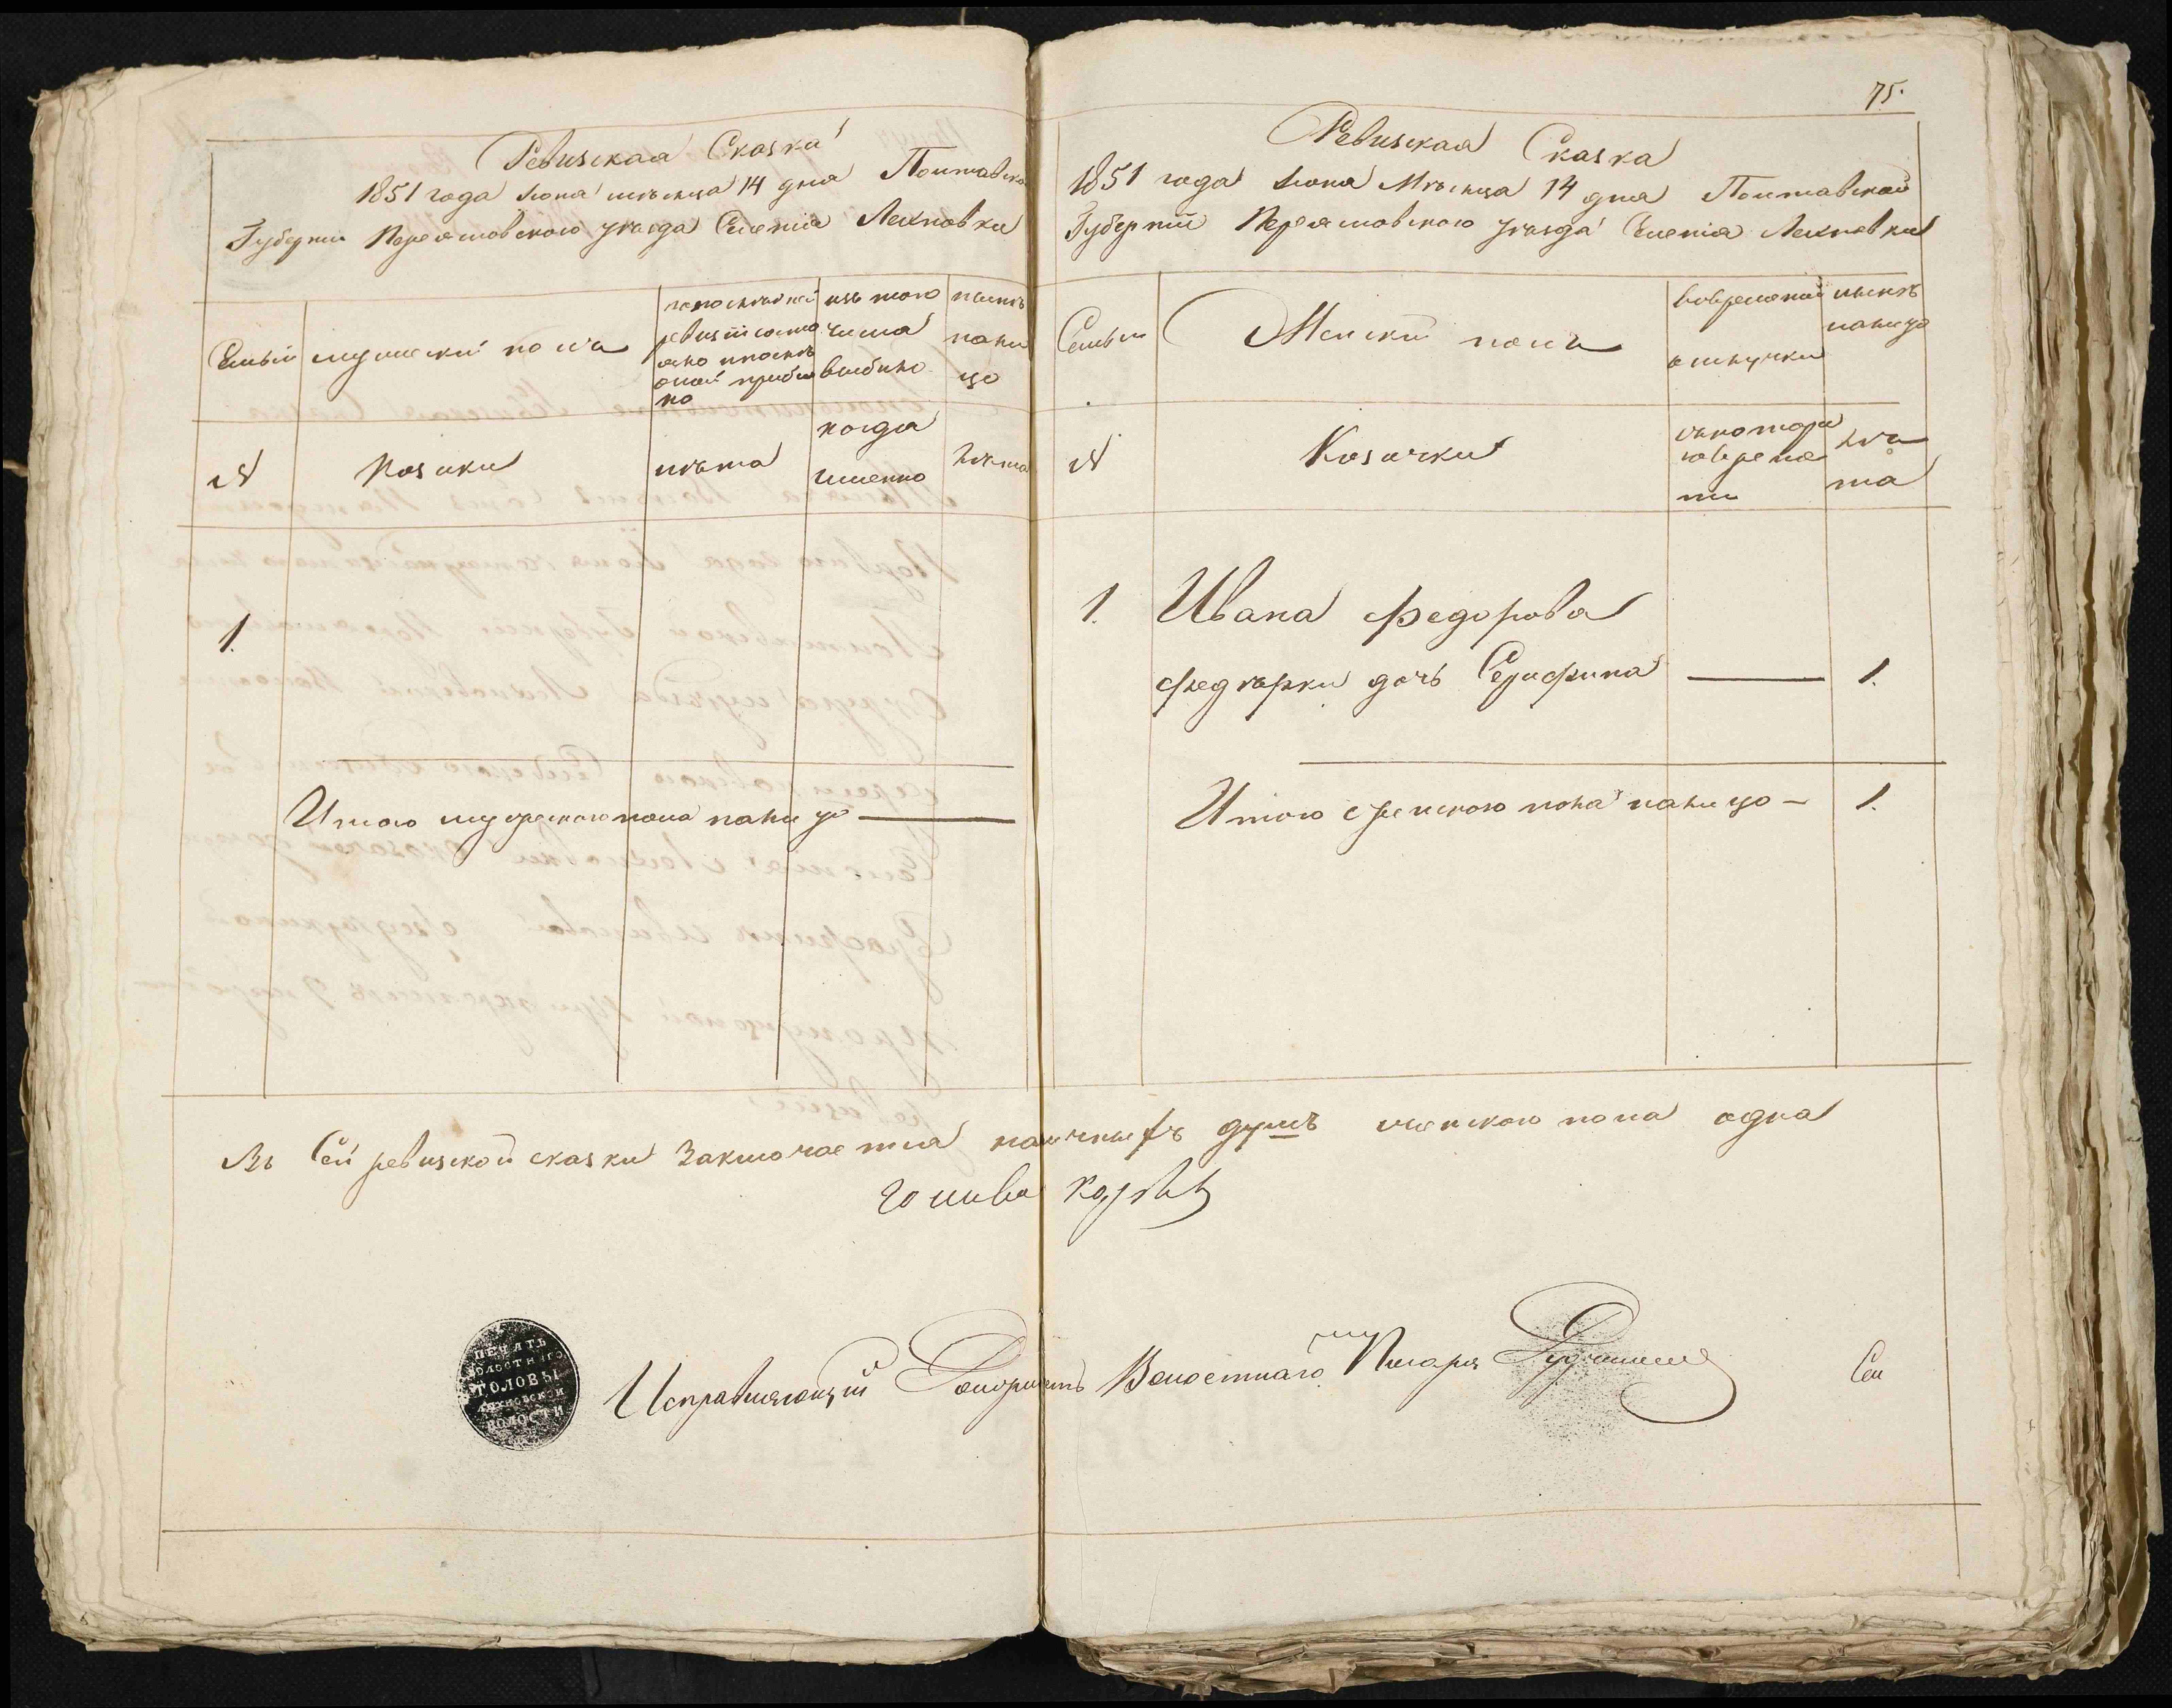 Ревизская Сказка
1851 года Июня месяца 14 дня Полтавской
Губернии Переяславского уезда Селенія Лехновки
Семьи
мужеский полъ
по последней
ревизіи состо
яло и после
оной прибы
ло
изъ того
числа
выбыло
ныне
нали
цо
№
Козаки
лѣта
когда
именно
лѣта
1.
Итого мужескаго пола на лицо —
75.
Ревизская Сказка
1851 года Июня Мѣсяца 14 дня Полтавской
Губерніи Переяславского уѣзда Селенія Лехновки
Семьи
Женскій полъ
во временной
отлучки
нынѣ
на лицо
№
Козачки
съ котора
го време
ни
лѣ
та
1. Ивана Федорова
Федѣрки дочь Серафина — 1.
Итого женского пола на лицо — 1.
Въ Сей ревизской сказки Заключается наличныхъ душъ женского пола одна
голива
ПЕЧАТЬ
ВОЛОСТНАГО
ГОЛОВЫ
ЛЕХНОВСКОЙ
ВОЛОСТИ
Исправляющій Должность Волостнаго Писаря
Сей